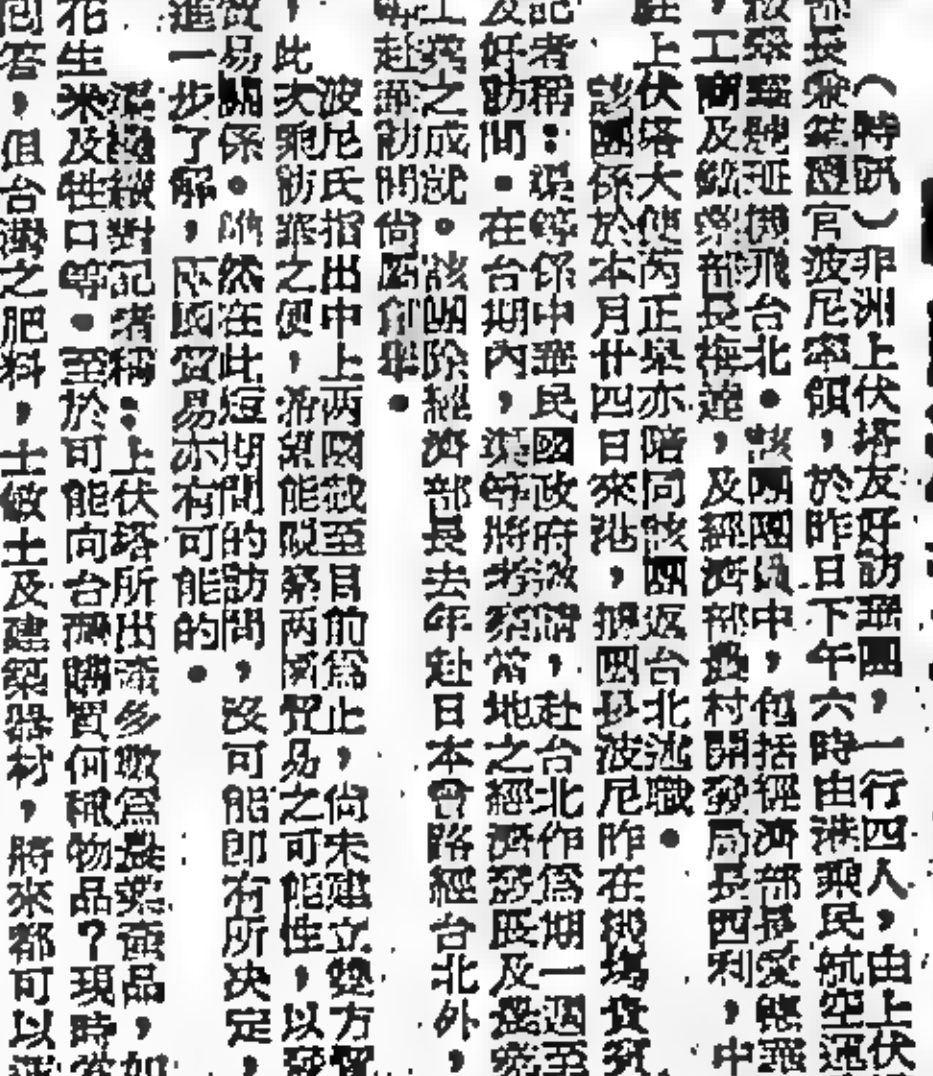 （特訊）非洲上伏塔友好訪華團，一行四人，由上伏
部長兼禮官波尼率領，於昨日下午六時由港乘民航空運
機飛台北。該團團員中，包括經濟部長愛
工商及部長梅達，及經濟部農村開發局長西利，中
上伏塔大使芮正皋亦陪同該團返台北述職。
該團係於本月廿四日來港，據團長波尼昨在機場貴賓
記者稱：渠等係中華民國政府邀請，赴台北作為期一週至
友好訪問。在台期內，渠等將考察當地之經濟發展及農業
工業之成就。該團除經濟部長去年赴日本曾路經台北外，
等赴華訪問尚屬創舉。
波尼氏指出中上两國截至目前為止，尚未建立雙方貿
，此次乘訪華之便，希望能視察两國貿易之可能性，以發
貿易關係。雖然在此短期間的訪問，沒可能即有所決定，
進一步了解，两國貿易亦有可能的。
渠繼對記者稱：上伏塔所出產多數為農業產品，如
花生米及牲口等。至於可能向台灣購買何種物品？現時當
回答，但台灣之肥料，士敏土及建築器材，將來都可以